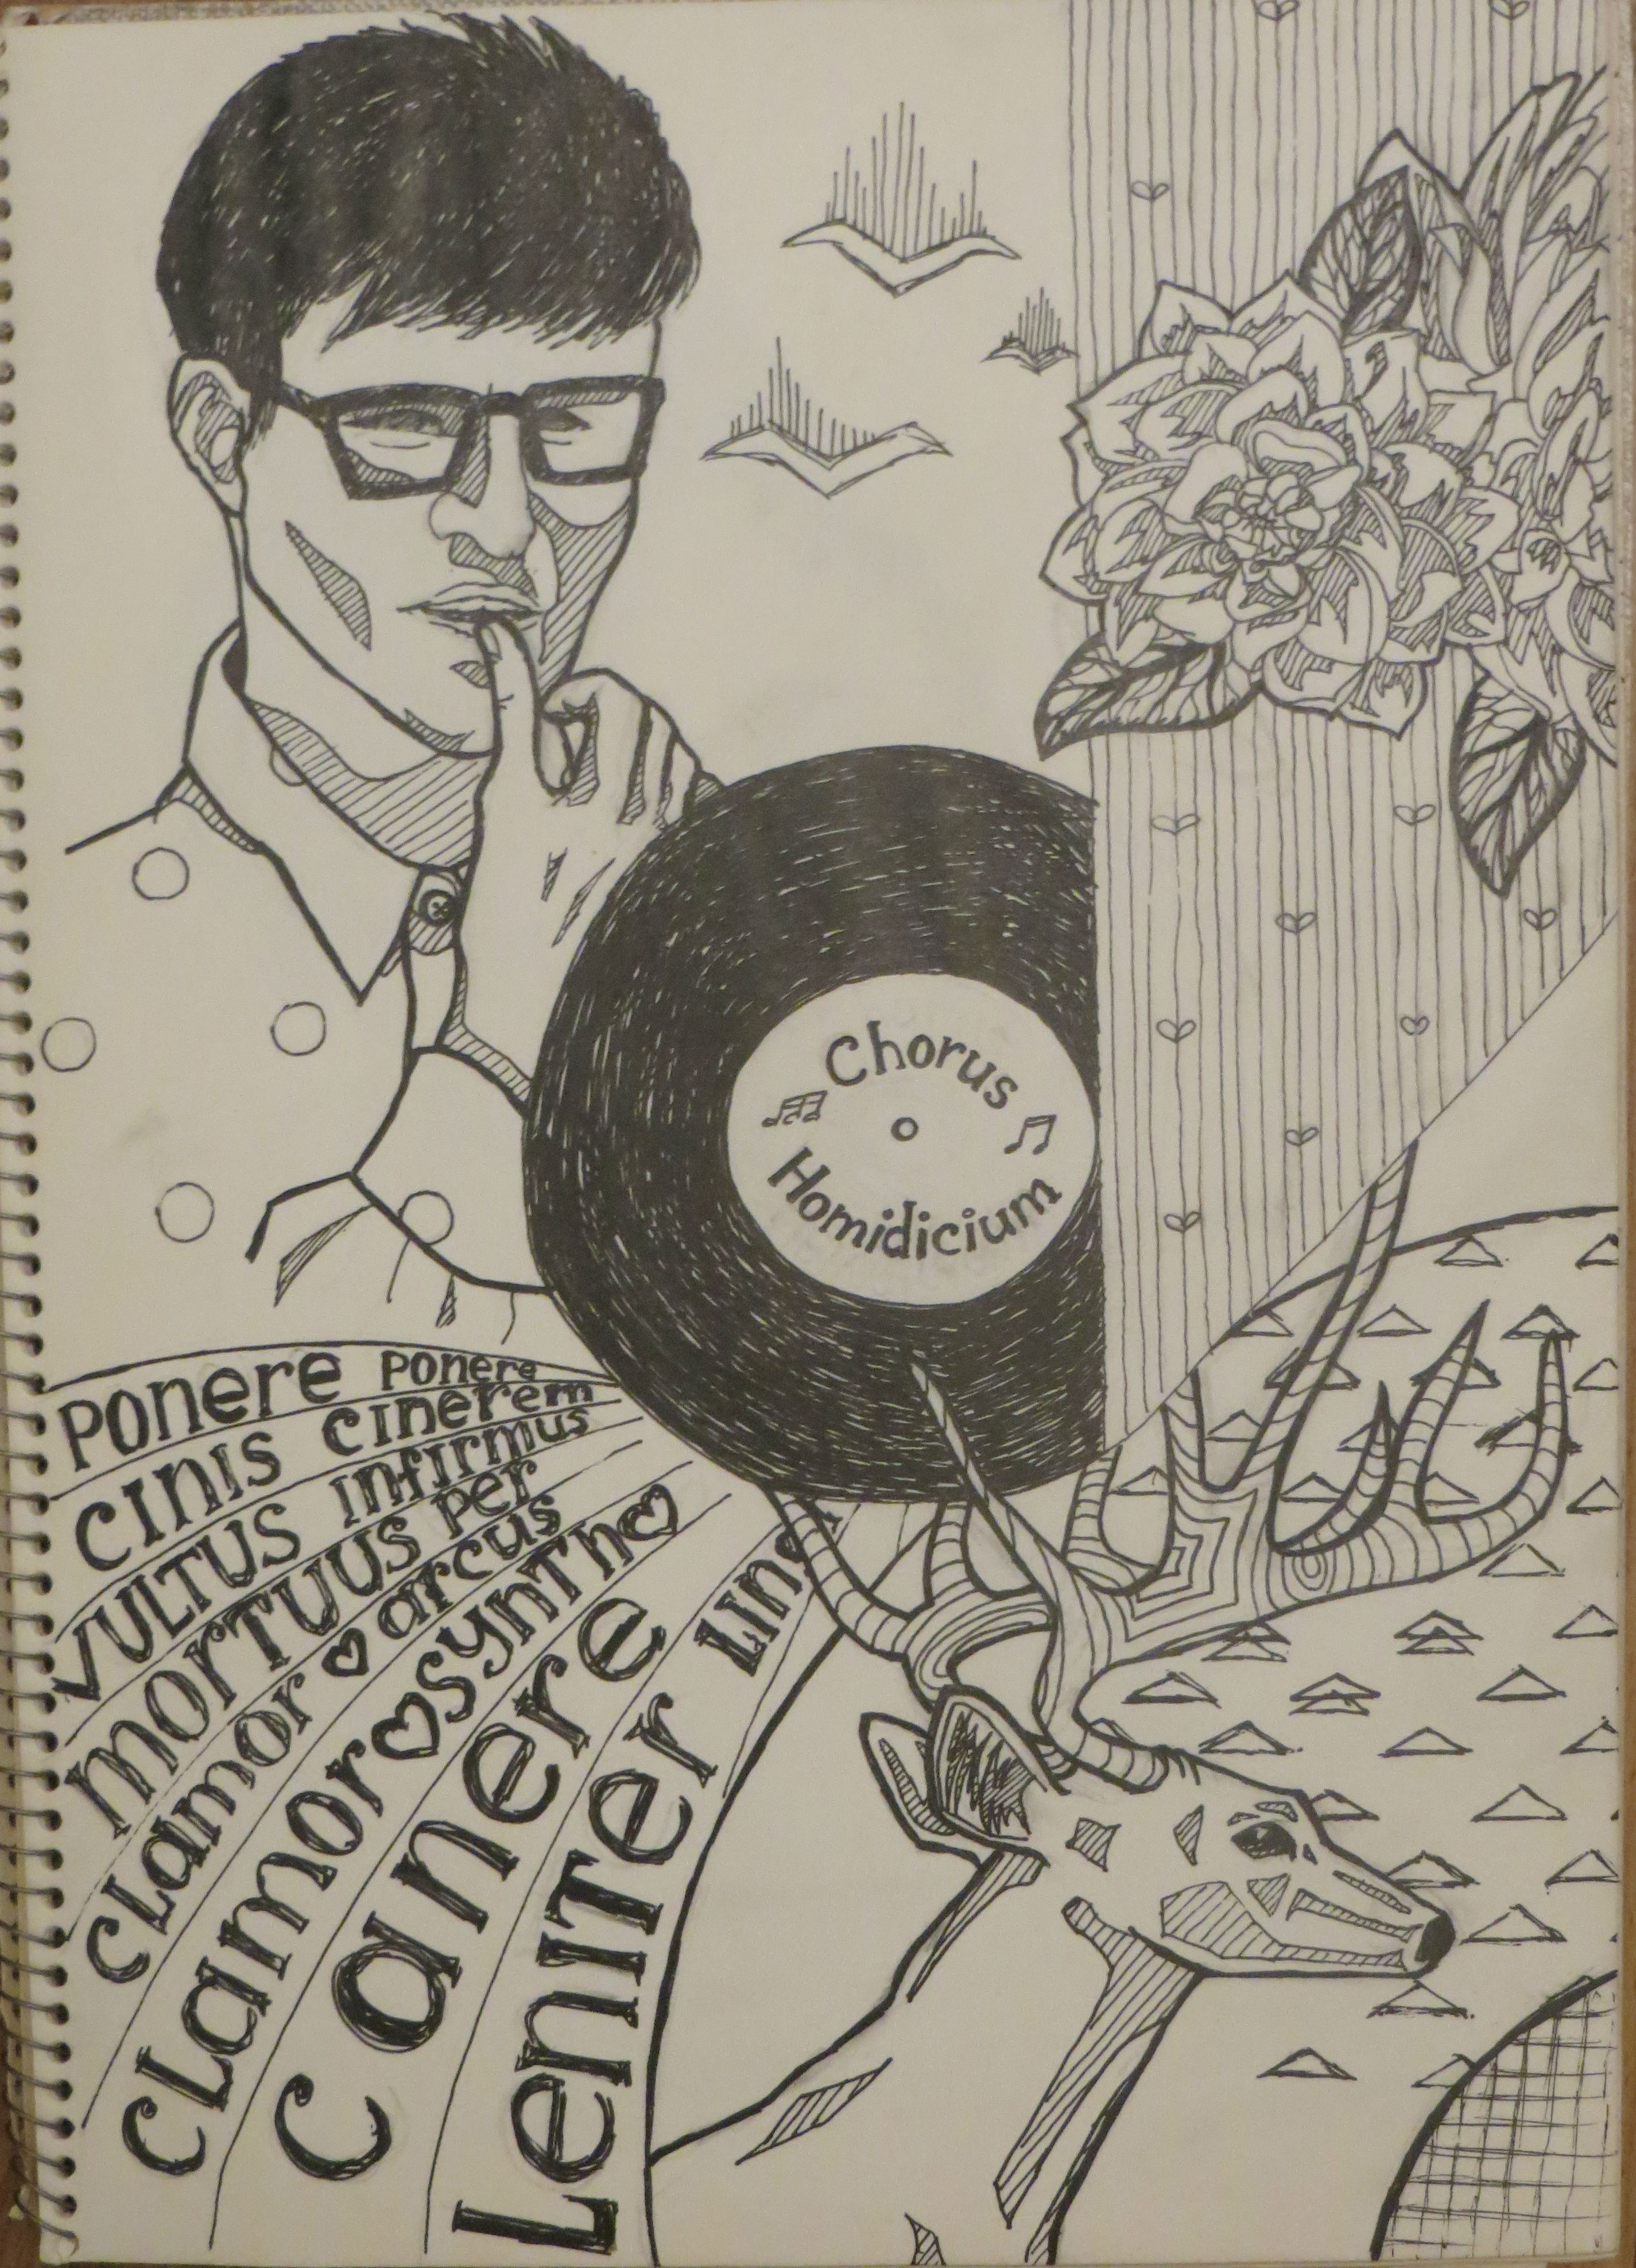 Chorus
Homidicium
Ponere Ponere
cinis cinerem
vultus infirmus
mortuus per
clamor ♡ arcus
clamor ♡ synth ♡
canere
Leniter